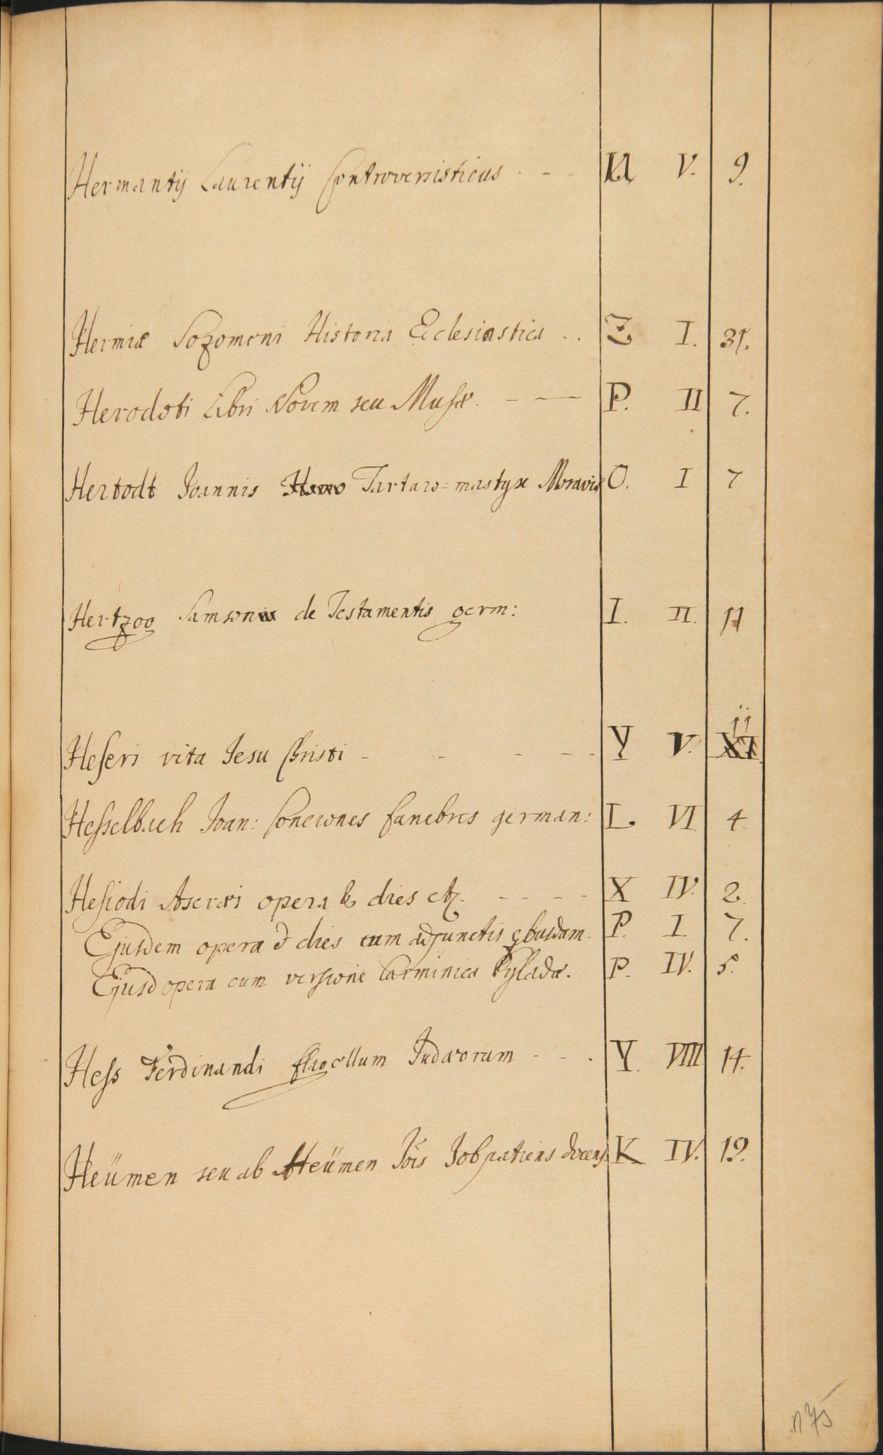 Hermantij Laurentij Controversisticus . - - U V. 9.
Hermiæ Sozomeni Historia Ecclesiastica . . Z I. 31.
Herodoti Libri Novem seu Musæ. - — P. II 7.
Hertodt Joannis Tartaro=mastyx Moraviæ O. I 7
Hertzog Samsonis de Testamentis germ: I. II. 11
Heseri vita Jesu Christi - - - - - Y V. 11
Hesselbach Joan: Conciones funebres german: L. VI 4
Hesiodi Ascræi opera & dies etc. - - - - X IV. 2.
Ejusdem opera & dies cum adjunctis quibusdam. P. I. 7.
Ejusd opera cum versione Carminica Pyladæ. P. IV. 5.
Hess Ferdinandi flagellum Judæorum - - . Y VIII 14.
Heümen seu ab Heümen Jois Job patiens docens K IV. 19.
n 75